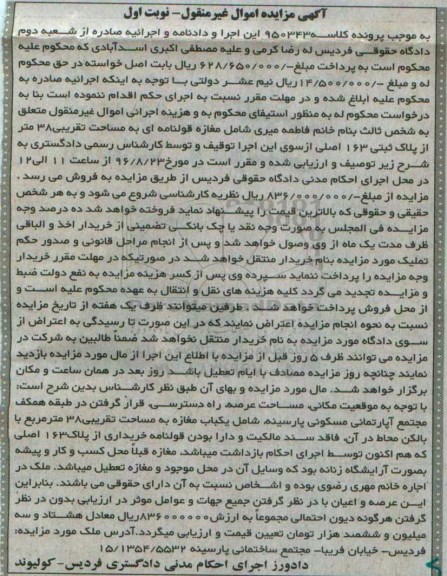 آگهی مزایده اموال غیرمنقول- نوبت اول
به موجب پرونده کلاسه ۹۵۰۳۴۳ این اجرا و دادنامه و اجرائیه صادره از شعبه دوم
دادگاه حقوقی فردیس له رضا کرمی و علیه مصطفی اکبری اسدآبادی که محکوم علیه
محکوم است به پرداخت مبلغ-/۶۲۸/۶۵۰/۰۰۰ ریال بابت اصل خواسته در حق محکوم
له و مبلغ -/۱۴/۵۰۰/۰۰۰ریال نیم عشر دولتی بـا توجه به اینکه اجرائیه صادره به
محکوم علیه ابلاغ شده و در مهلت مقرر نسبت به اجرای حکم اقدام ننموده است بنا به
درخواست محکوم له به منظور استیفای محکوم به و هزینه اجرائی اموال غیرمنقول متعلق
به شخص ثالث بنام خانم فاطمه میری شامل مغازه قولنامه ای به مساحت تقریبی۳۸ متر
از پلاک ثبتی ۱۶۳ اصلی ازسوی این اجرا توقیف و توسط کارشناس رسمی دادگستری به
شـرح زیر توصیف و ارزیابی شده و مقرر است در مورخ۹۶/۸/۲۳ از ساعت ۱۱ الی۱۲
در محل اجرای احکام مدنی دادگاه حقوقی فردیس از طریق مزایده به فروش می رسد .
مزایده از مبلغ-/۸۳۶/۰۰۰/۰۰۰ ریال نظریه کارشناسی شروع می شود و به هر شخص
حقیقی و حقوقی که بالاترین قیمت را پیشـنهاد نماید فروخته خواهد شد ده درصد وجه
مزایـده فی المجلس به صورت وجه نقد یا چک بانکـی تضمینی از خریدار اخذ و الباقی
ظرف مدت یک ماه از وی وصول خواهد شد و پس از انجام مراحل قانونی و صدور حکم
تملیک مورد مزایده بنام خریدار منتقل خواهد شـد در صورتیکه در مهلت مقرر خریدار
وجه مزایده را پرداخت ننماید سـپرده وی پس از کسر هزینه مزایده به نفع دولت ضبط
و مزایـده تجدید می گردد کلیه هزینه های نقل و انتقال به عهده محکوم علیه است و
از محل فروش پرداخت خواهد شـد . طرفین میتوانند ظرف یک هفته از تاریخ مزایده
نسبت به نحوه انجام مزایده اعتراض نمایند که در این صورت تا رسیدگی به اعتراض از
سـوی دادگاه مورد مزایده به نام خریدار منتقل نخواهد شد ضمناً طالبین به شرکت در
مزایده می توانند ظرف ۵ روز قبل از مزایده با اطلاع این اجرا از مال مورد مزایده بازدید
نمایند چنانچه روز مزایده مصادف با ایام تعطیل باشـد روز بعد در همان ساعت و مکان
برگزار خواهد شـد. مال مورد مزایده و بهای آن طبق نظر کارشـناس بدین شرح است:
با توجه به موقعیت مکانی، مساحت عرصه، راه دسترسی، قرار گرفتن در طبقه همکف
مجتمع آپارتمانی مسکونی پارسینه، شامل یکباب مغازه به مساحت تقریبی۳۸ مترمربع با
بالکن محاط در آن، فاقد سند مالکیت و دارا بودن قولنامه خریداری از پلاک۱۶۳ اصلی
که هم اکنون توسط اجرای احکام بازداشت میباشد، مغازه قبلاً محل کسب و کار و پیشه
بصورت آرایشگاه زنانه بود که وسایل آن در محل موجود و مغازه تعطیل میباشد، ملک در
اجاره خانم مهری رضوی بوده و اشخاص نسبت به آن دارای حقوقی می باشند. بنابراین
ایـن عرصه و اعیان با در نظر گرفتن جمیع جهات و عوامل موثر در ارزیابی بدون در نظر
گرفتن هرگونه دیون احتمالی مجموعاً به ارزش۸۳۶۰۰۰۰۰۰ریال معادل هشتاد و سه
میلیون و ششصد هزار تومان تعیین قیمت و ارزیابی میگردد.آدرس ملک مورد مزایده:
فردیس- خیابان فریبا- مجتمع ساختمانی پارسینه ۱۵/۱۳۵۴/۵۵۳۲
دادورز اجرای احکام مدنی دادگستری فردیس- کولیوند